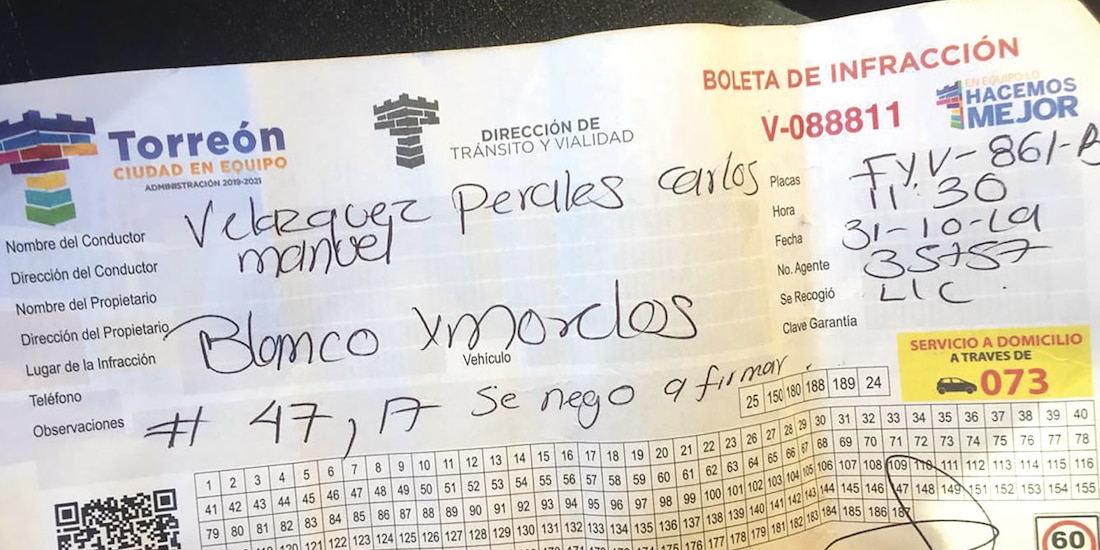 BOLETA DE INFRACCIÓN
V-088811
EN EQUIPO LO
HACEMOS
MEJOR
Torreón
CIUDAD EN EQUIPO
ADMINISTRACIÓN 2019-2021
DIRECCIÓN DE
TRÁNSITO Y VIALIDAD
Nombre del Conductor Velazquez Perales Carlos
manuel
Dirección del Conductor
Nombre del Propietario
Dirección del Propietario
Lugar de la Infracción Blanco y morelos
Vehículo
Teléfono
Observaciones # 47, 17 se nego a firmar.
Placas FYV-861-B
Hora 11:30
Fecha 31-10-19
No. Agente 35757
Se Recogió LIC.
Clave Garantía
SERVICIO A DOMICILIO
A TRAVES DE
073
25 150 180 188 189 24
1 2 3 4 5 6 7 8 9 10 11 12 13 14 15 16 17 18 19 20 21 22 23 26 27 28 29 30 31 32 33 34 35 36 37 38 39 40
41 42 43 44 45 46 47 48 49 50 51 52 53 54 55 56 57 58 59 60 61 62 63 64 65 66 67 68 69 70 71 72 73 74 75 76 77 78
79 80 81 82 83 84 85 86 87 88 89 90 91 92 93 94 95 96 97 98 99 100 101 102 103 104 105 106 107 108 109 110 111 112 113 114 115 116
119 120 121 122 123 124 125 126 127 128 129 130 131 132 133 134 135 136 137 138 139 140 141 142 143 144 145 146 147 148 149 151 152 153 154 155
175 176 177 178 179 181 182 183 184 185 186 187
60